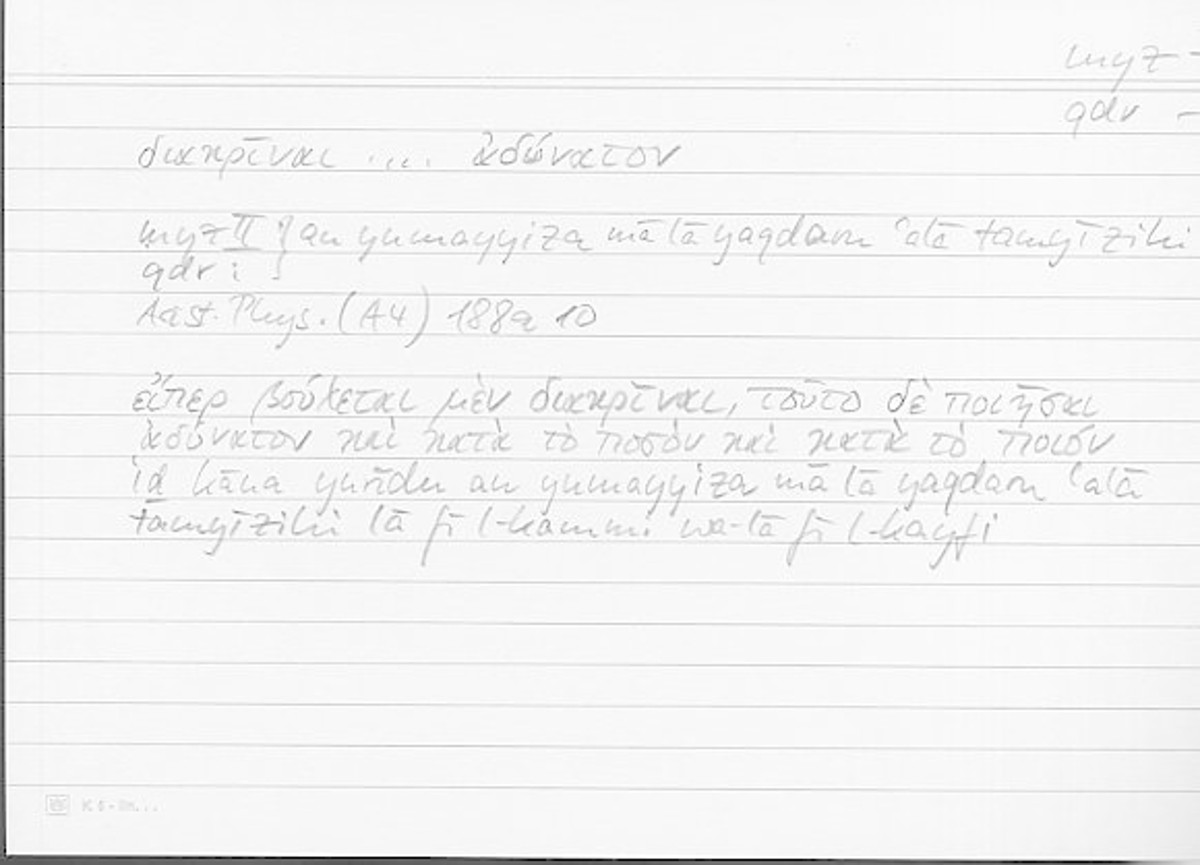 myz -
qdr -
διακρῖναι .... ἀδύνατον
myz II } an yumayyiza mā lā yaqdaru ʿalā tamyīzihi
qdr i }
Arist. Phys. (A4) 188a 10
εἴπερ βούλεται μὲν διακρῖναι, τοῦτο δὲ ποιῆσαι
ἀδύνατον καὶ κατὰ τὸ ποσὸν καὶ κατὰ τὸ ποιόν
iḏ kāna yurīdu an yumayyiza mā lā yaqdaru ʿalā
tamyīzihi lā fī l-kammi wa-lā fī l-kayfi